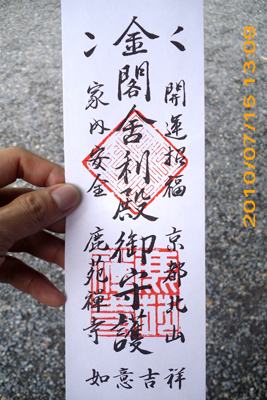 開運招福 京都北山
金閣舎利殿御守護
家内安全 鹿苑禅寺
如意吉祥
2010/07/15 13:09